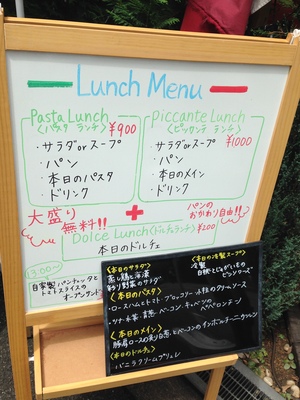 Lunch Menu
Pasta Lunch
〈パスタ ランチ〉 ¥900
・サラダorスープ
・パン
・本日のパスタ
・ドリンク
Piccante Lunch
〈ピッカンテ ランチ〉
¥1000
・サラダorスープ
・パン
・本日のメイン
・ドリンク
大盛り
無料!!
+
パンの
おかわり自由!!
Dolce Lunch〈ドルチェランチ〉 ¥200
本日のドルチェ
13:00〜
自家製パンチェッタと
トマトスライスの
オープンサンド
〈本日のサラダ〉
蒸し鶏と海藻
彩り野菜のサラダ
〈本日の冷製スープ〉
冷製
〈本日のパスタ〉
・ロースハムとトマト、ブロッコリー
クリームソース
・ツナ・水菜・ベーコン、キャベツの
ペペロンチーノ
〈本日のメイン〉
豚肩ロースの
ベーコンのインボルティーニ
〈本日のドルチェ〉
バニラクリームブリュレ